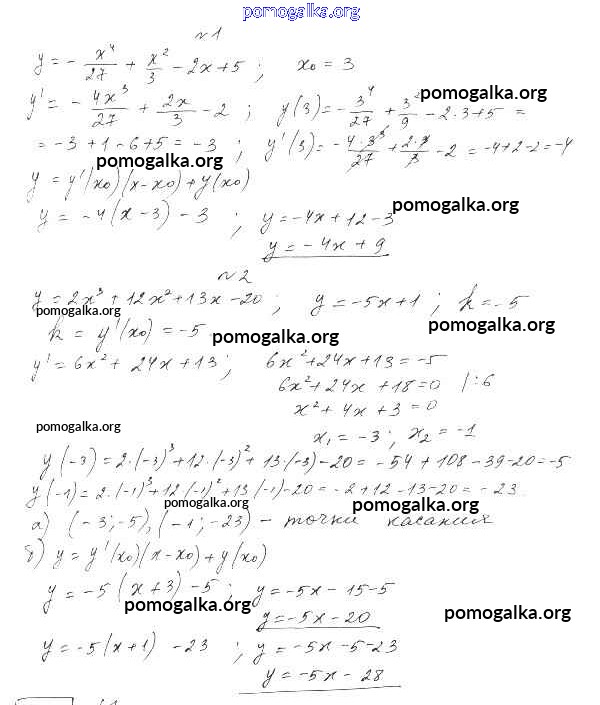 pomogalka.org
№1
y = - x⁴/27 + x²/3 - 2x + 5 ; x₀ = 3
pomogalka.org
y' = - 4x³/27 + 2x/3 - 2 ; y(3) = - 3⁴/27 + 3²/9 - 2·3 + 5 =
= -3 + 1 - 6 + 5 = -3 ; y'(3) = - 4·3³/27 + 2·3/3 - 2 = -4 + 2 - 2 = -4
pomogalka.org
y = y'(x₀)(x - x₀) + y(x₀)
pomogalka.org
y = -4(x - 3) - 3 ; y = -4x + 12 - 3
y = -4x + 9
№2
y = 2x³ + 12x² + 13x - 20 ; y = -5x + 1 ; k = -5
pomogalka.org
pomogalka.org
k = y'(x₀) = -5
pomogalka.org
y' = 6x² + 24x + 13 ; 6x² + 24x + 13 = -5
6x² + 24x + 18 = 0 / :6
x² + 4x + 3 = 0
pomogalka.org
x₁ = -3 ; x₂ = -1
y(-3) = 2·(-3)³ + 12·(-3)² + 13·(-3) - 20 = -54 + 108 - 39 - 20 = -5
y(-1) = 2·(-1)³ + 12(-1)² + 13(-1) - 20 = -2 + 12 - 13 - 20 = -23
pomogalka.org
pomogalka.org
а) (-3; -5), (-1; -23) - точки касания
б) y = y'(x₀)(x - x₀) + y(x₀)
y = -5(x + 3) - 5 ; y = -5x - 15 - 5
pomogalka.org
pomogalka.org
y = -5x - 20
y = -5(x + 1) - 23 ; y = -5x - 5 - 23
y = -5x - 28